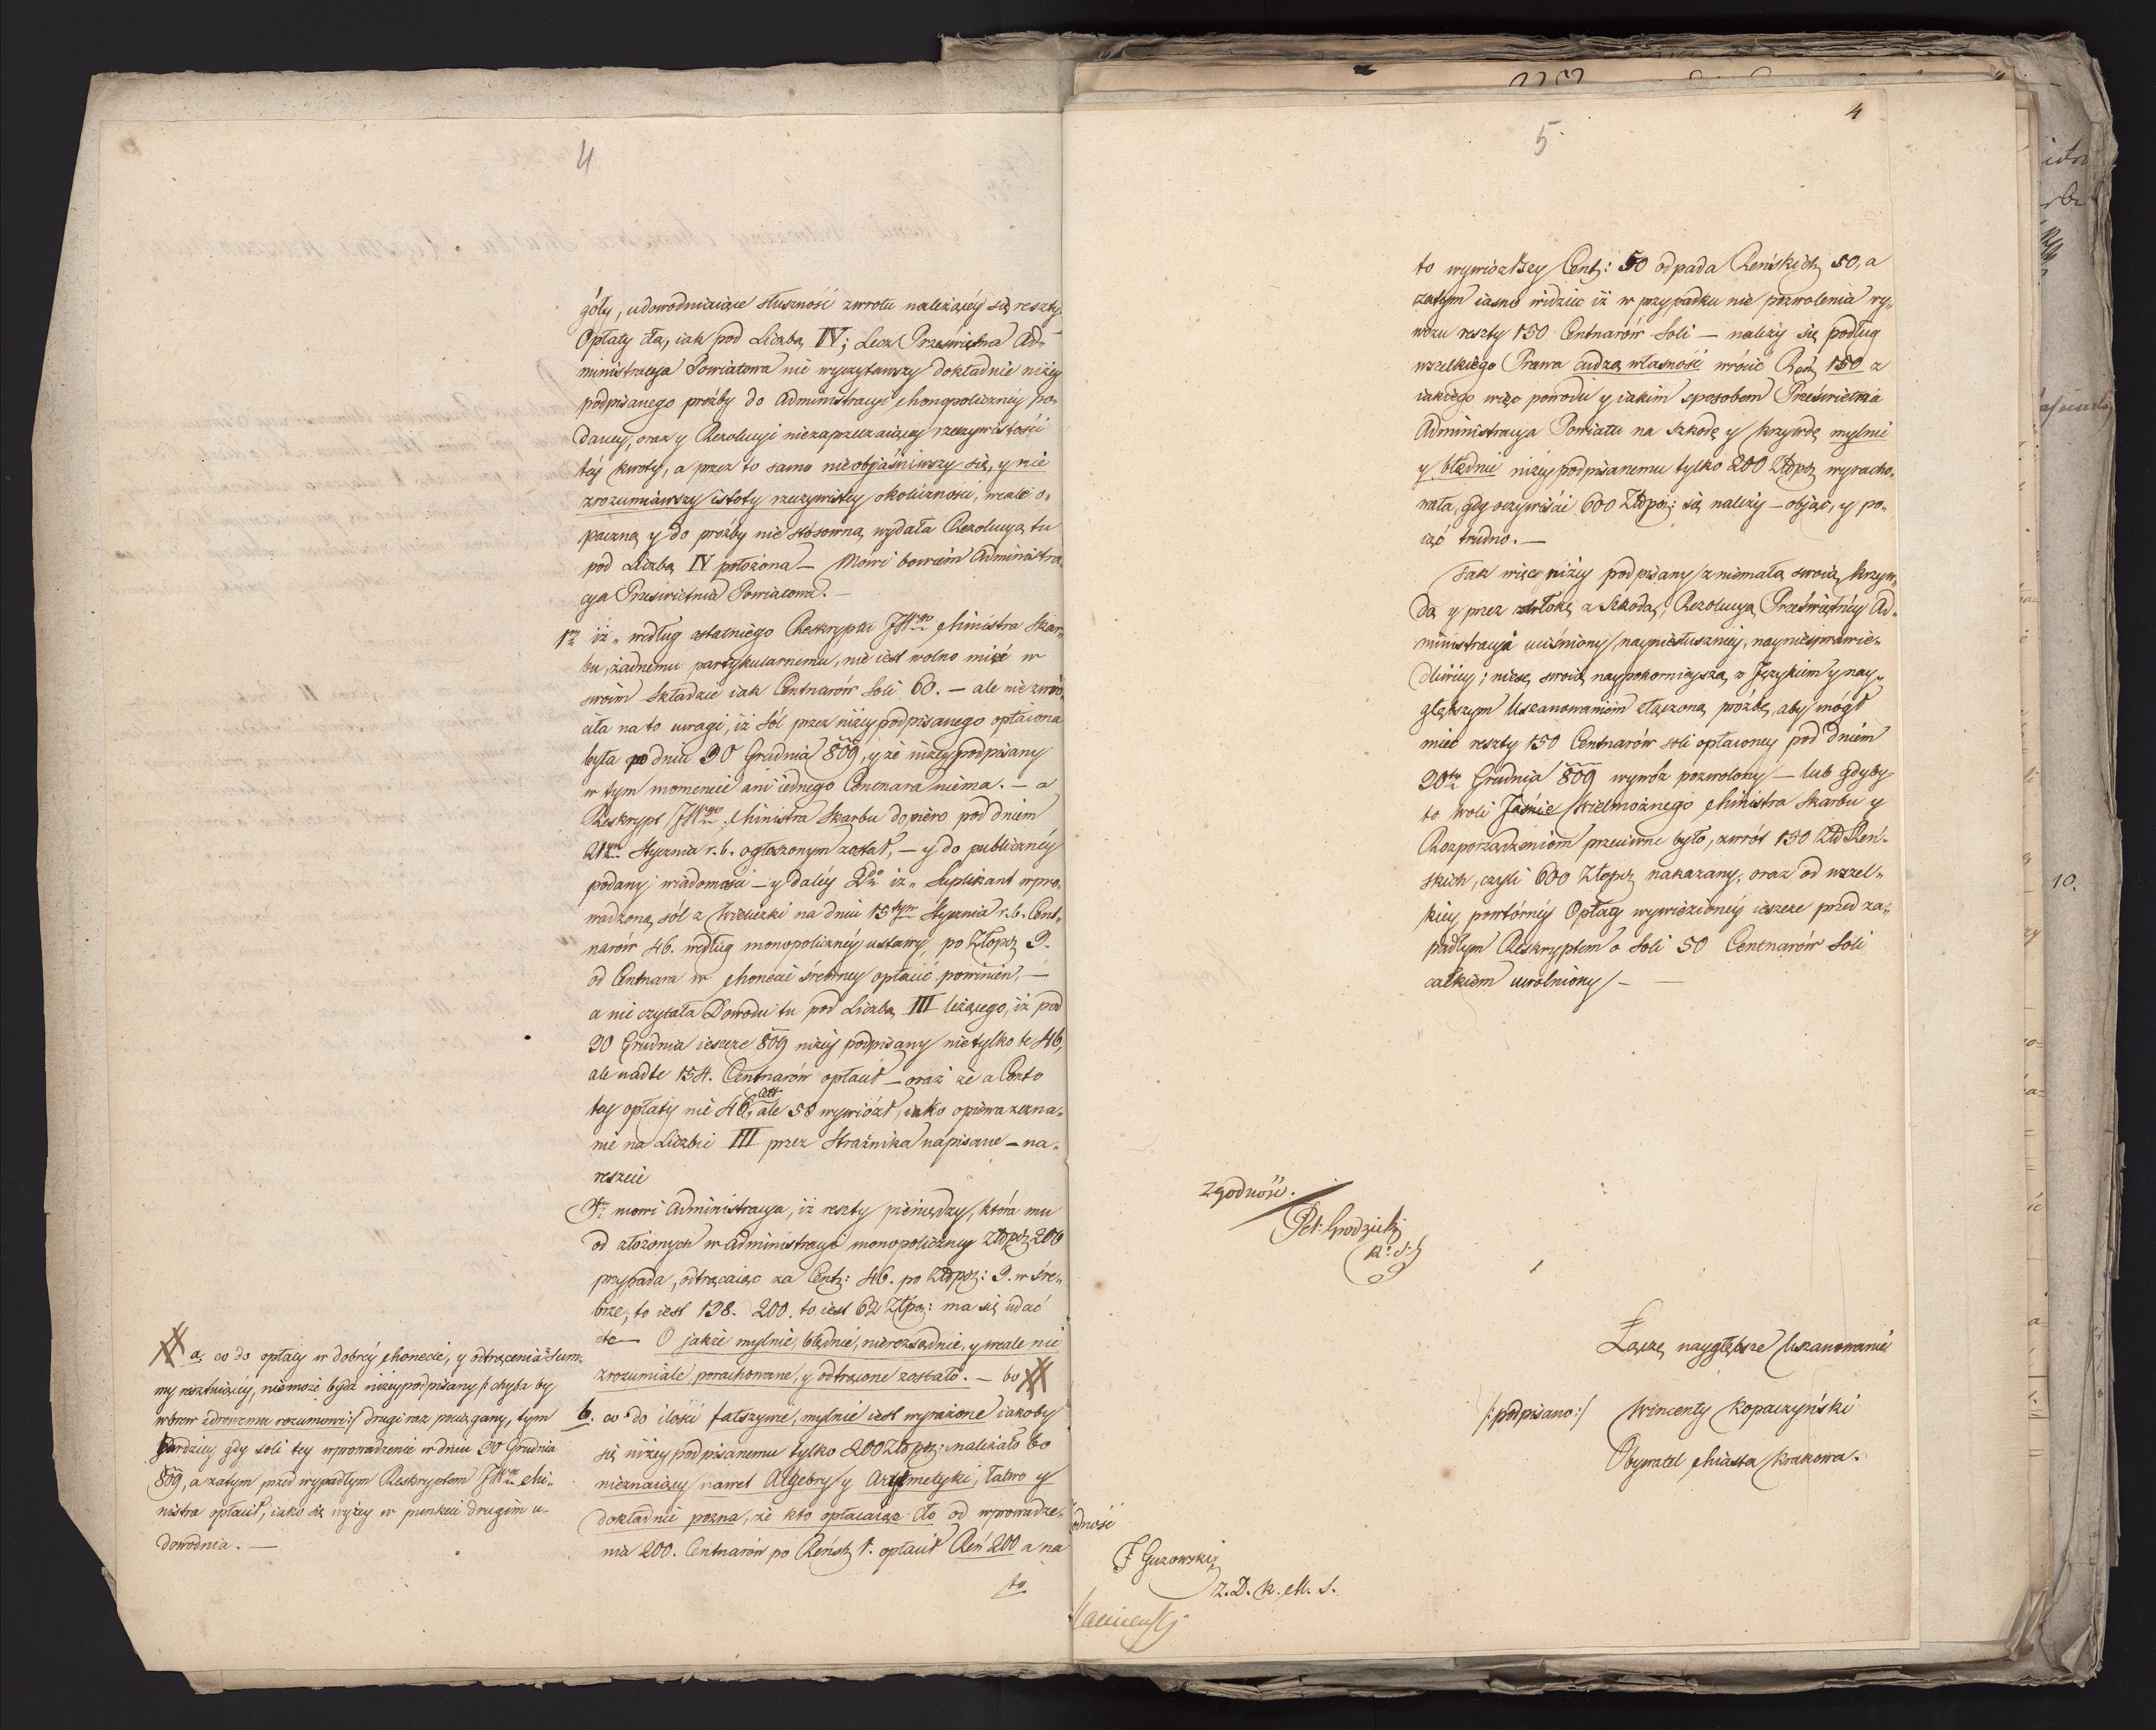 4
góły, udowodniaiące słuszność zwrotu należącéy się reszty
Opłaty cła, iak pod Liczbą IV; Lecz Prześwietna Ad-
ministracya Powiatowa nie wyczytawszy dokładnie niżey
podpisanego proźby do Administracyi Monopoliczney po-
daney, oraz y Rezolucyi niezaprzeczaiącey rzeczywistości
téy kwoty, a przez to samo nieobjaśniwszy się, y nie
zrozumiawszy istoty rzeczywistey okoliczności, wcale o-
paczną y do proźby nie stosowną wydała Rezolucyą tu
pod Liczbą IV położoną — Mówi bowiem Administra-
cya Prześwietna Powiatowa. —
1mo iż „ według ostatniego Reskryptu JWgo Ministra Skar-
bu, żadnemu partykularnemu, nie iest wolno mieć w
swoim Składzie iak Centnarów Soli 60. — ale nie zwró-
ciła na to uwagi, iż sól przez niżeypodpisanego opłacona
była dnia 30 Grudnia 809, y że niżeypodpisany
w tym momencie ani iednego Centnara niema. — a
Reskrypt JWgo Ministra Skarbu dopiéro pod dniem
21ym Stycznia r. b. ogłoszonym został, — y do publicznéy
podany wiadomości — y daléy 2do iż „ Suplikant wpro-
wadzoną sól z Wieliczki na dniu 15tym Stycznia r. b. Cent-
narów 46. według monopolicznéy ustawy, po Złopz 3.
od Centnara w Monecie śrebrney opłacić powinien, —
a nie czytała Dowodu tu pod Liczbą III leżącego, iż pod
30 Grudnia ieszcze 809 niżéy podpisany nie tylko te 46,
ale nadte 154. Centnarów opłacił — oraz że a Conto
tey opłaty nie 46, Ctt ale 50 wywiózł, iako opiewa zezna-
nie na Liczbie III przez Strażnika napisane — na-
reszcie
3tio mowi Administracya, iż reszty pieniędzy, która mu
od złożonych w Administracyi monopoliczney Złopz 200
przypada, odtrącaiąc za Centz: 46. po Złopz: 3. w śre-
brze, to iest 138. 200. to iest 62 Złpz: ma się udać
etc — O jakże mylnie, błędnie, nierozsądnie, y wcale nie
zrozumiale porachowane, y odtrącone zostało. — bo
a, co do opłaty w dobréy Monecie, y odtrącenia Sum-
my resztuiącéy, niemoże bydź niżeypodpisany /: chyba by
wbrew zdrowemu rozumowi :/ drugi raz pociągany, tym
bardziey gdy soli tey wprowadzenie w dniu 30 Grudnia
809, a zatym przed wypadłym Reskryptem JWgo Mi-
nistra opłacił, iako się wyżey w punkcie drugim u-
dowodnia. —
b. co do ilości fałszywie, mylnie iest wyrażone iakoby
się niżey podpisanemu tylko 200 Złopz: należało bo
nieznaiący nawet Algebry y Arytmetyki, łatwo y
dokładnie pozna, że kto opłacaiąc cło od wprowadze-
nia 200. Centnarów po Reńsk 1. opłacił Reń 200 a na
to
5.
4
to wywiózłszy Centz: 50 odpada Reńskich 50, a
zatym iasno widzieć iż w przypadku nie pozwolenia wy-
wozu reszty 150 Centnarów Soli — należy się podług
wszelkiego Prawa cudzą własność wrócić Reń 150 z
iakiego więc powodu y iakim sposobem Prześwietna
Administracya Powiatu na szkodę y krzywdę mylnie
y błędnie niżey podpisanemu tylko 200 Złopz wyracho-
wała, gdy oczywiście 600 Złopz: się należy — objąć, y po-
iąć trudno. —
Tak więc niżey podpisany z niemałą swoią krzyw-
dą y przez zwłokę a Szkodą, Rezolucyą Prześwietnéy Ad-
ministracyi uciśniony naynieszłuszniey, nayniesprawie-
dliwiey; niesie swoią naypokornieyszą z Językiem y nay-
głębszym Uszanowaniem złączoną próźbę, aby mógł
mieć reszty 150 Centnarów soli opłaconey pod Dniem
30tym Grudnia 809 wywóz pozwolony — lub gdyby
to woli Jaśnie Wielmożnego Ministra Skarbu y
Rozporządzeniom przeciwne było, zwrót 150 Zł Reń-
skich, czyli 600 Złopz nakazany, oraz od wszel-
kiey powtórnéy Opłaty wywiezionéy ieszcze przed za-
padłym Reskryptem o Soli 50 Centnarów Soli
całkiem uwolniony —
Zgodność.
Pet: Grodzicki
R: S:
Łączę naygłębsze Uszanowanie
/: podpisano :/ Wincenty Kopaczyński
Obywatel Miasta Krakowa.
odność
F Guzowski
Z. D. K. M. S.